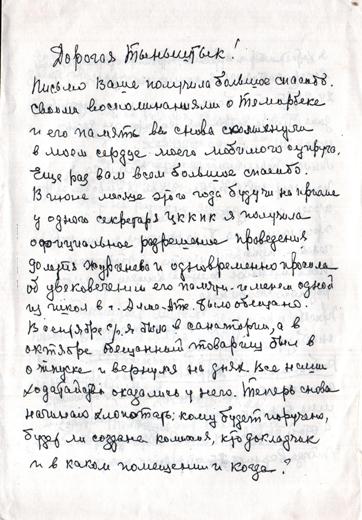 Дорогая Тыныштык!
Письмо Ваше получила большое спасибо.
Своими воспоминаниями о Темирбеке
и его память вы снова
в моем сердце моего любимого супруга.
Еще раз вам всем большое спасибо.
В июле месяце этого года будучи на приеме
у одного секретаря ЦККПК я получила
официальное разрешение проведения
Жургенева и одновременно просила
об увековечении его памяти. именем одной
из школ в г. Алма-Ате. было обещано.
В сентябре с.г. я была в санатории, а в
октябре обещанный товарищ был в
отпуске и вернулся на днях. Все наши
ходатайства оказались у него. Теперь снова
начинаю хлопотать; кому будет поручено,
будет ли создана комиссия, кто докладчик
и в каком помещении и когда?